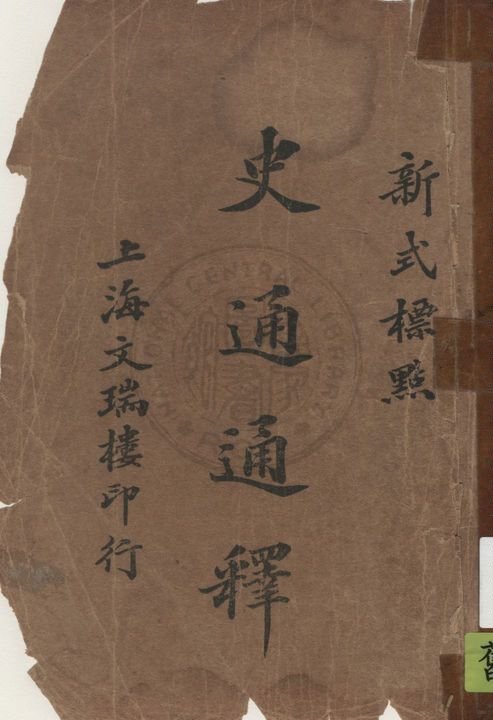 新式標點
史通通釋
上海文瑞樓印行
舊
CENTRAL LIBRARY